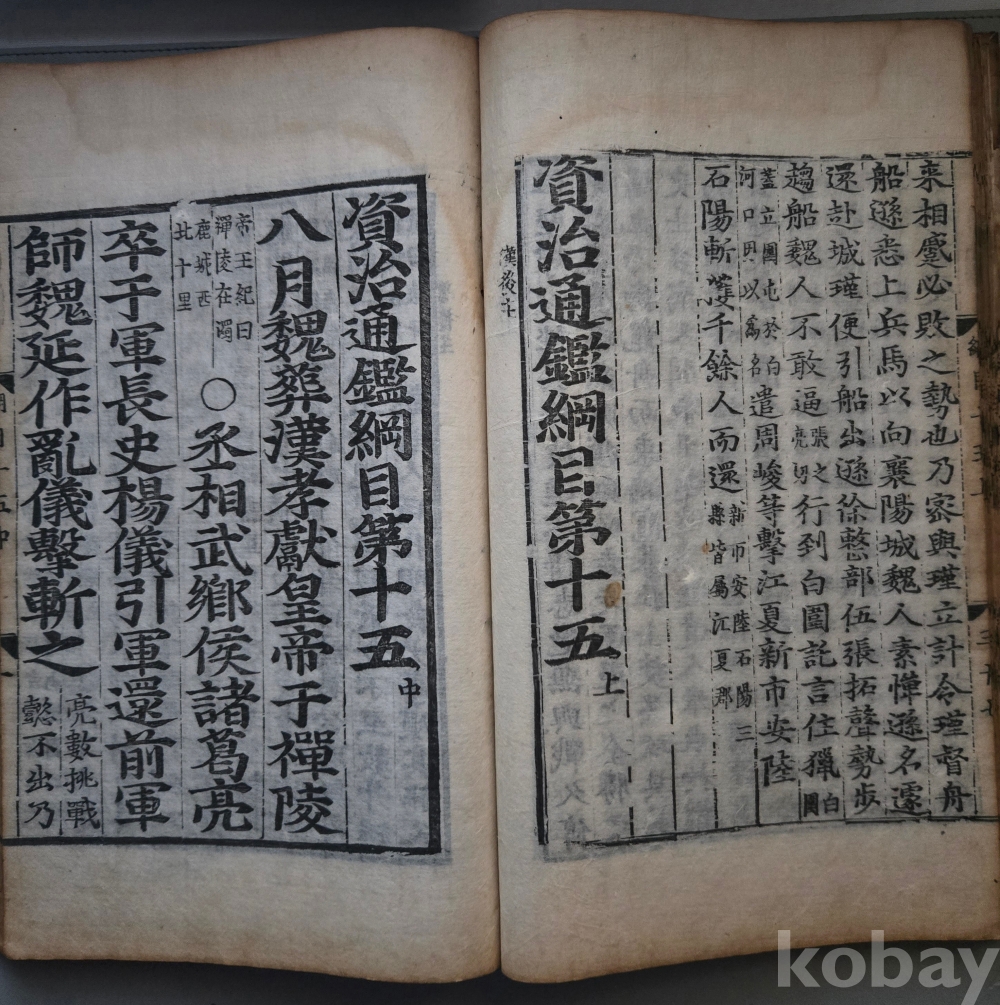 来相蹙必敗之勢也乃密與瑾立計令瑾督舟
船遜悉上兵馬以向襄陽城魏人素憚遜名遽
還赴城瑾便引船出遜徐整部伍張拓聲勢步
趨船魏人不敢逼張之亮切行到白圍託言住獵白圍
蓋立圍屯於白河口因以爲名遣周峻等擊江夏新市安陸
石陽斬獲千餘人而還新市安陸石陽三縣皆屬江夏郡
資治通鑑綱目第十五上
資治通鑑綱目第十五中
八月魏葬漢孝獻皇帝于禪陵
帝王紀曰禪陵在濁鹿城西北十里〇丞相武鄉侯諸葛亮
卒于軍長史楊儀引軍還前軍
師魏延作亂儀擊斬之亮數挑戰懿不出乃
kobay